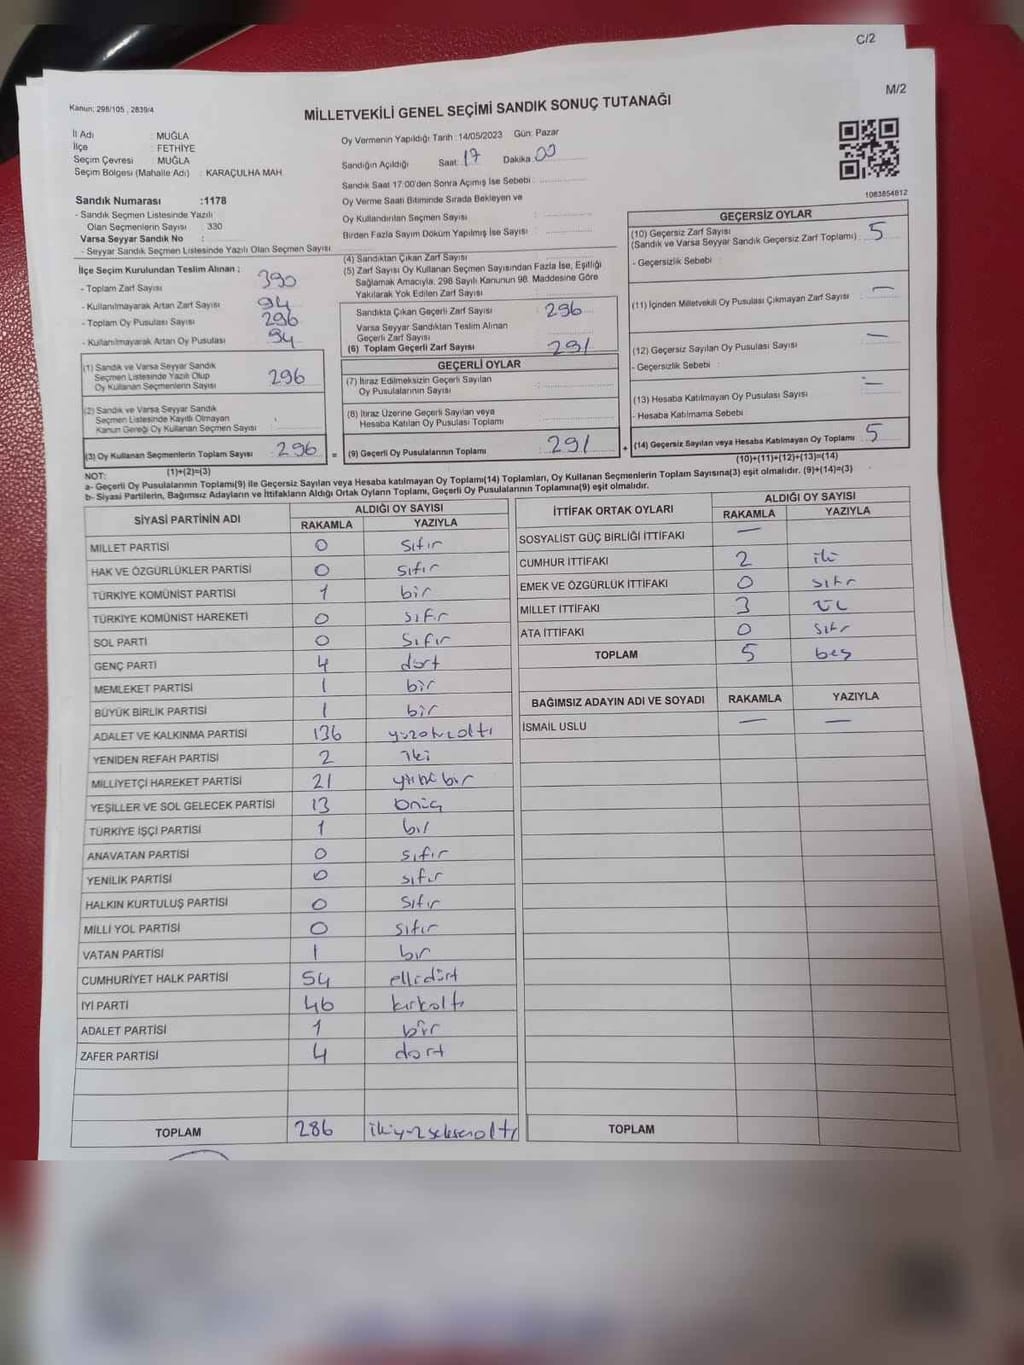 C/2
M/2
Kanun: 298/105 , 2839/4
MİLLETVEKİLİ GENEL SEÇİMİ SANDIK SONUÇ TUTANAĞI
İl Adı : MUĞLA
İlçe : FETHİYE
Seçim Çevresi : MUĞLA
Seçim Bölgesi (Mahalle Adı) : KARAÇULHA MAH
Oy Vermenin Yapıldığı Tarih :14/05/2023 Gün: Pazar
Sandığın Açıldığı Saat: 17 Dakika: 00
Sandık Saat 17:00'den Sonra Açımış İse Sebebi :
1083854812
Sandık Numarası :1178
- Sandık Seçmen Listesinde Yazılı
Olan Seçmenlerin Sayısı : 330
Varsa Seyyar Sandık No :
- Seyyar Sandık Seçmen Listesinde Yazılı Olan Seçmen Sayısı
Oy Verme Saati Bitiminde Sırada Bekleyen ve
Oy Kullandırılan Seçmen Sayısı :
Birden Fazla Sayım Döküm Yapılmış İse Sayısı :
İlçe Seçim Kurulundan Teslim Alınan ;
- Toplam Zarf Sayısı : 390
- Kullanılmayarak Artan Zarf Sayısı : 94
- Toplam Oy Pusulası Sayısı : 296
- Kullanılmayarak Artan Oy Pusulası : 94
(1) Sandık ve Varsa Seyyar Sandık
Seçmen Listesinde Yazılı Olup
Oy Kullanan Seçmenlerin Sayısı : 296
(2) Sandık ve Varsa Seyyar Sandık
Seçmen Listesinde Kayıtlı Olmayan
Kanun Gereği Oy Kullanan Seçmen Sayısı :
(3) Oy Kullanan Seçmenlerin Toplam Sayısı : 296
(1)+(2)=(3)
(4) Sandıktan Çıkan Zarf Sayısı
(5) Zarf Sayısı Oy Kullanan Seçmen Sayısından Fazla İse, Eşitliği
Sağlamak Amacıyla, 298 Sayılı Kanunun 98. Maddesine Göre
Yakılarak Yok Edilen Zarf Sayısı
Sandıkta Çıkan Geçerli Zarf Sayısı : 296
Varsa Seyyar Sandıktan Teslim Alınan
Geçerli Zarf Sayısı :
(6) Toplam Geçerli Zarf Sayısı : 291
GEÇERLİ OYLAR
(7) İtiraz Edilmeksizin Geçerli Sayılan
Oy Pusulalarının Sayısı :
(8) İtiraz Üzerine Geçerli Sayılan veya
Hesaba Katılan Oy Pusulası Toplamı :
= (9) Geçerli Oy Pusulalarının Toplamı : 291 +
GEÇERSİZ OYLAR
(10) Geçersiz Zarf Sayısı
(Sandık ve Varsa Seyyar Sandık Geçersiz Zarf Toplamı) : 5
- Geçersizlik Sebebi :
(11) İçinden Milletvekili Oy Pusulası Çıkmayan Zarf Sayısı : —
(12) Geçersiz Sayılan Oy Pusulası Sayısı : —
- Geçersizlik Sebebi :
(13) Hesaba Katılmayan Oy Pusulası Sayısı : —
- Hesaba Katılmama Sebebi :
(14) Geçersiz Sayılan veya Hesaba Katılmayan Oy Toplamı : 5
(10)+(11)+(12)+(13)=(14)
NOT:
a- Geçerli Oy Pusulalarının Toplamı(9) ile Geçersiz Sayılan veya Hesaba katılmayan Oy Toplamı(14) Toplamları, Oy Kullanan Seçmenlerin Toplam Sayısına(3) eşit olmalıdır. (9)+(14)=(3)
b- Siyasi Partilerin, Bağımsız Adayların ve İttifakların Aldığı Ortak Oyların Toplamı, Geçerli Oy Pusulalarının Toplamına(9) eşit olmalıdır.
SİYASİ PARTİNİN ADI ALDIĞI OY SAYISI
RAKAMLA YAZIYLA
MİLLET PARTİSİ 0 sıfır
HAK VE ÖZGÜRLÜKLER PARTİSİ 0 sıfır
TÜRKİYE KOMÜNİST PARTİSİ 1 bir
TÜRKİYE KOMÜNİST HAREKETİ 0 sıfır
SOL PARTİ 0 sıfır
GENÇ PARTİ 4 dört
MEMLEKET PARTİSİ 1 bir
BÜYÜK BİRLİK PARTİSİ 1 bir
ADALET VE KALKINMA PARTİSİ 136 yüzotuzaltı
YENİDEN REFAH PARTİSİ 2 iki
MİLLİYETÇİ HAREKET PARTİSİ 21 yirmibir
YEŞİLLER VE SOL GELECEK PARTİSİ 13 onüç
TÜRKİYE İŞÇİ PARTİSİ 1 bir
ANAVATAN PARTİSİ 0 sıfır
YENİLİK PARTİSİ 0 sıfır
HALKIN KURTULUŞ PARTİSİ 0 sıfır
MİLLİ YOL PARTİSİ 0 sıfır
VATAN PARTİSİ 1 bir
CUMHURİYET HALK PARTİSİ 54 ellidört
İYİ PARTİ 46 kırkaltı
ADALET PARTİSİ 1 bir
ZAFER PARTİSİ 4 dört
TOPLAM 286 ikiyüzseksenaltı
İTTİFAK ORTAK OYLARI ALDIĞI OY SAYISI
RAKAMLA YAZIYLA
SOSYALİST GÜÇ BİRLİĞİ İTTİFAKI —
CUMHUR İTTİFAKI 2 iki
EMEK VE ÖZGÜRLÜK İTTİFAKI 0 sıfır
MİLLET İTTİFAKI 3 üç
ATA İTTİFAKI 0 sıfır
TOPLAM 5 beş
BAĞIMSIZ ADAYIN ADI VE SOYADI RAKAMLA YAZIYLA
İSMAİL USLU — —
TOPLAM